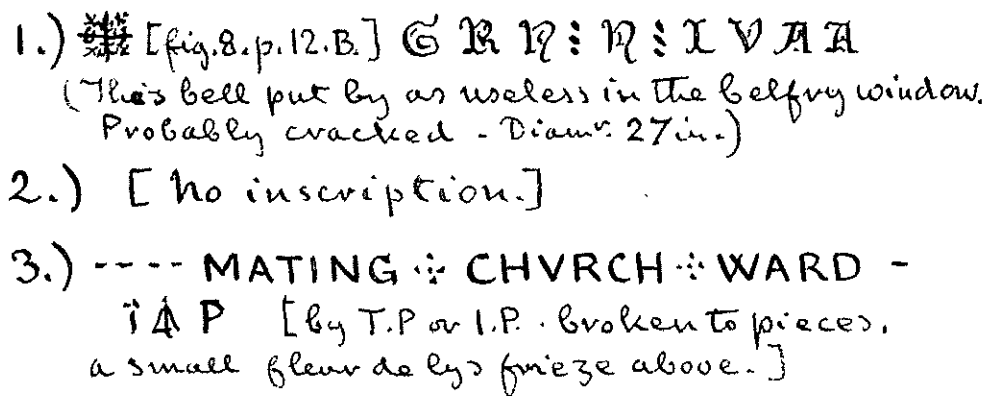 1.) [fig.8.p.12.B.] G R N : N : I V A A
(This bell put by as useless in the belfry window.
Probably cracked - Diamr. 27in.)
2.) [no inscription.]
3.) ---- MATING ⁘ CHVRCH ⁘ WARD -
P [by T.P or I.P. broken to pieces,
a small fleur de lys frieze above.]